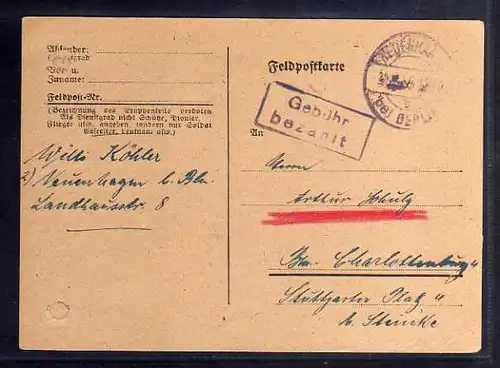 Absender:
Dienstgrad
Vor- u.
Zuname:
Feldpost-Nr.
(Bezeichnung des Truppenteils verboten.
Als Dienstgrad nicht Schütze, Pionier,
Flieger usw. angeben, sondern nur Soldat
Gefreiter, Leutnant usw.)
Willi Köhler
2) Neuenhagen b. Bln
Landhausstr. 8
Feldpostkarte
Gebühr
bezahlt
NEUENHAGEN
(bei BERLIN)
An
Herrn
Arthur Schulz
Bln. Charlottenburg 4
Stuttgarter Platz 4
b. Steinke